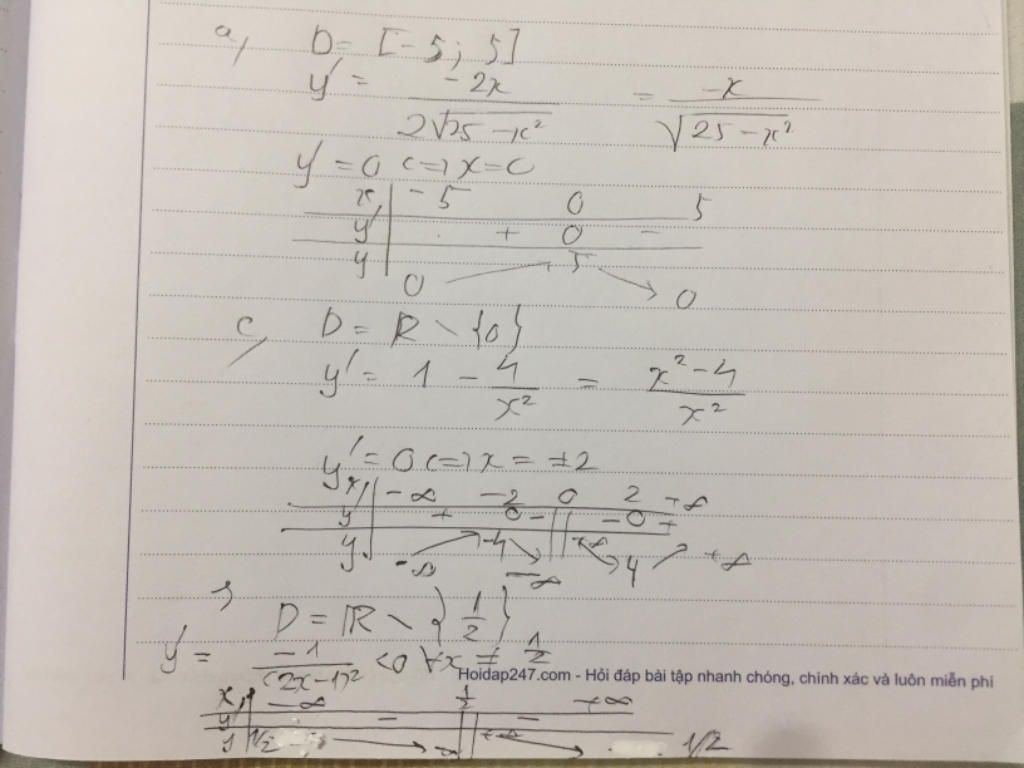 a, D = [-5; 5]
y' = -2x / 2√25-x² = -x / √25-x²
y' = 0 <=> x = 0
x -5 0 5
y' + 0 -
y 0 5 0
c, D = R \ {0}
y' = 1 - 4/x² = x²-4/x²
y' = 0 <=> x = ±2
x -∞ -2 0 2 +∞
y' + 0 - || - 0 +
y -∞ -4 -∞ || +∞ 4 +∞
D = R \ {1/2}
y' = -1/(2x-1)² <0 ∀x ≠ 1/2
Hoidap247.com - Hỏi đáp bài tập nhanh chóng, chính xác và luôn miễn phí
x -∞ 1/2 +∞
y' - || -
y 1/2 -∞ || +∞ 1/2